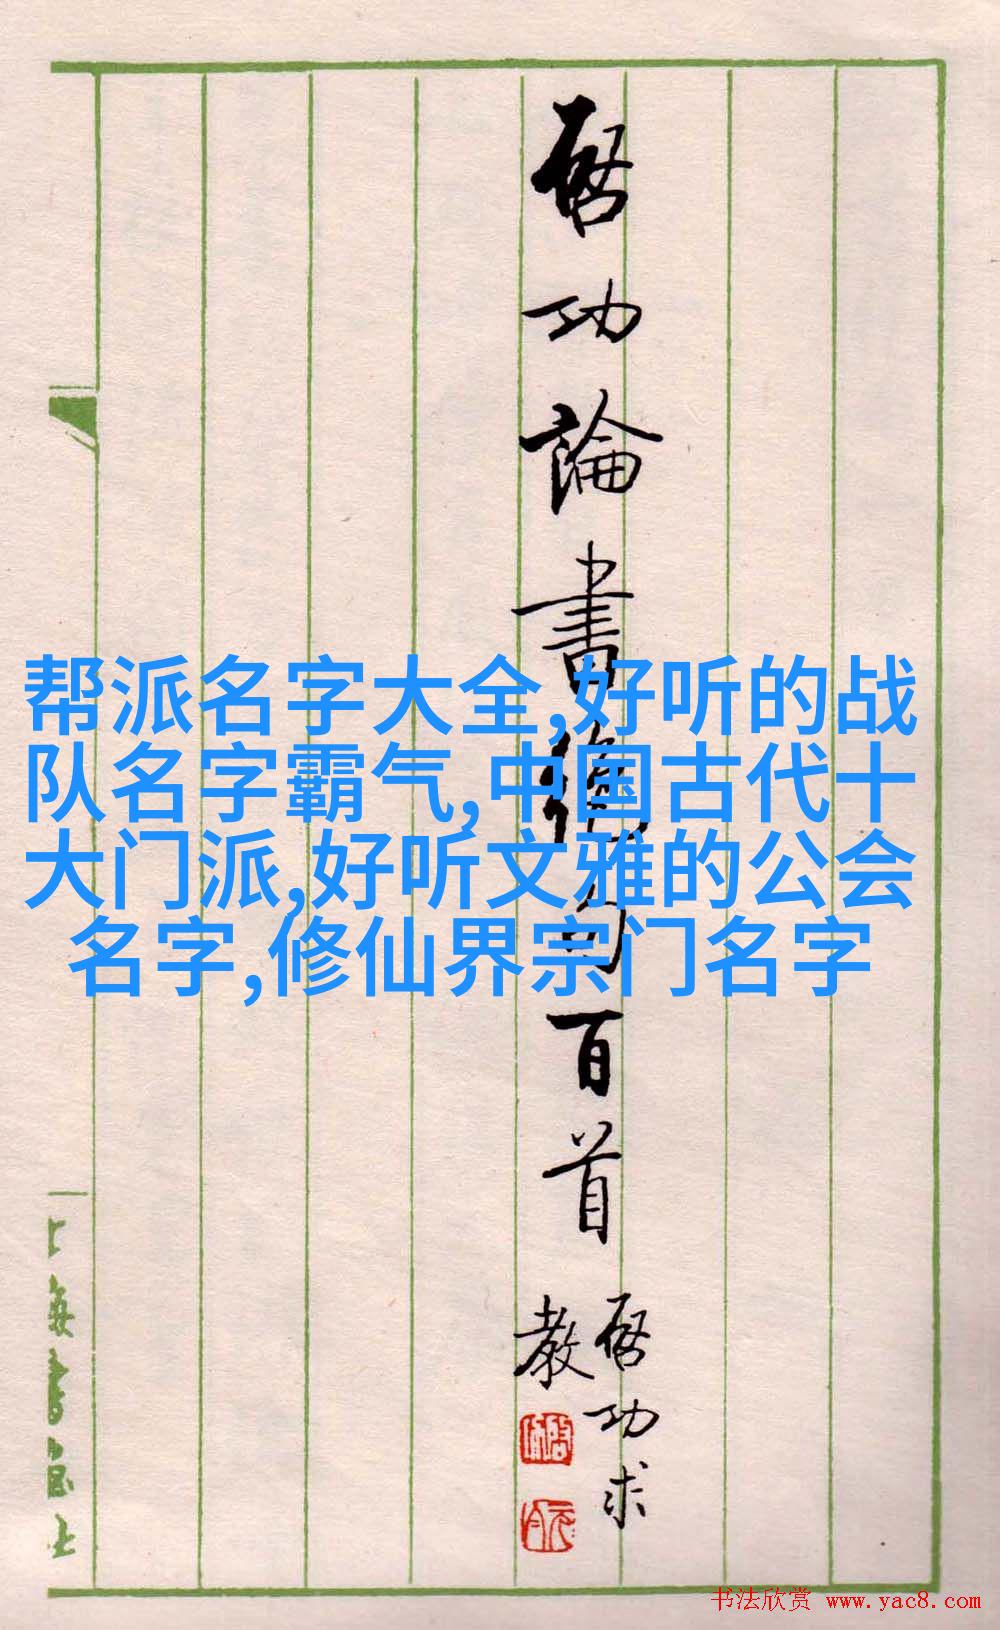 启功論書絶句百首
启功求
教
帮派名字大全,好听的战
队名字霸气,中国古代十
大门派,好听文雅的公会
名字,修仙界宗门名字
书法欣赏 www.yac8.com